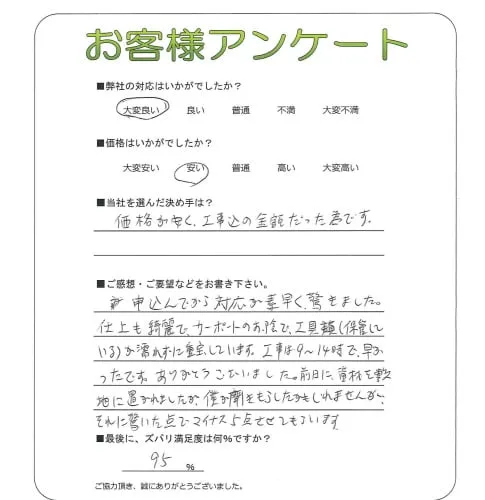 お客様アンケート
■弊社の対応はいかがでしたか？
大変良い 良い 普通 不満 大変不満
■価格はいかがでしたか？
大変安い 安い 普通 高い 大変高い
■当社を選んだ決め手は？
価格が安く、工事込の金額だった為です。
■ご感想・ご要望などをお書き下さい。
申込んでから対応が素早く、驚きました。
仕上も綺麗で、カーポートのお陰で、工具類(保管して
いる)が濡れずに重宝しています。工事は9〜14時で、早か
ったです。ありがとうございました。前日に、資材を敷
地に置かれましたが、僕が聞きもらしたかもしれませんが、
それに驚いた点でマイナス5点させてもらいます
■最後に、ズバリ満足度は何％ですか？
95 %
ご協力頂き、誠にありがとうございました。